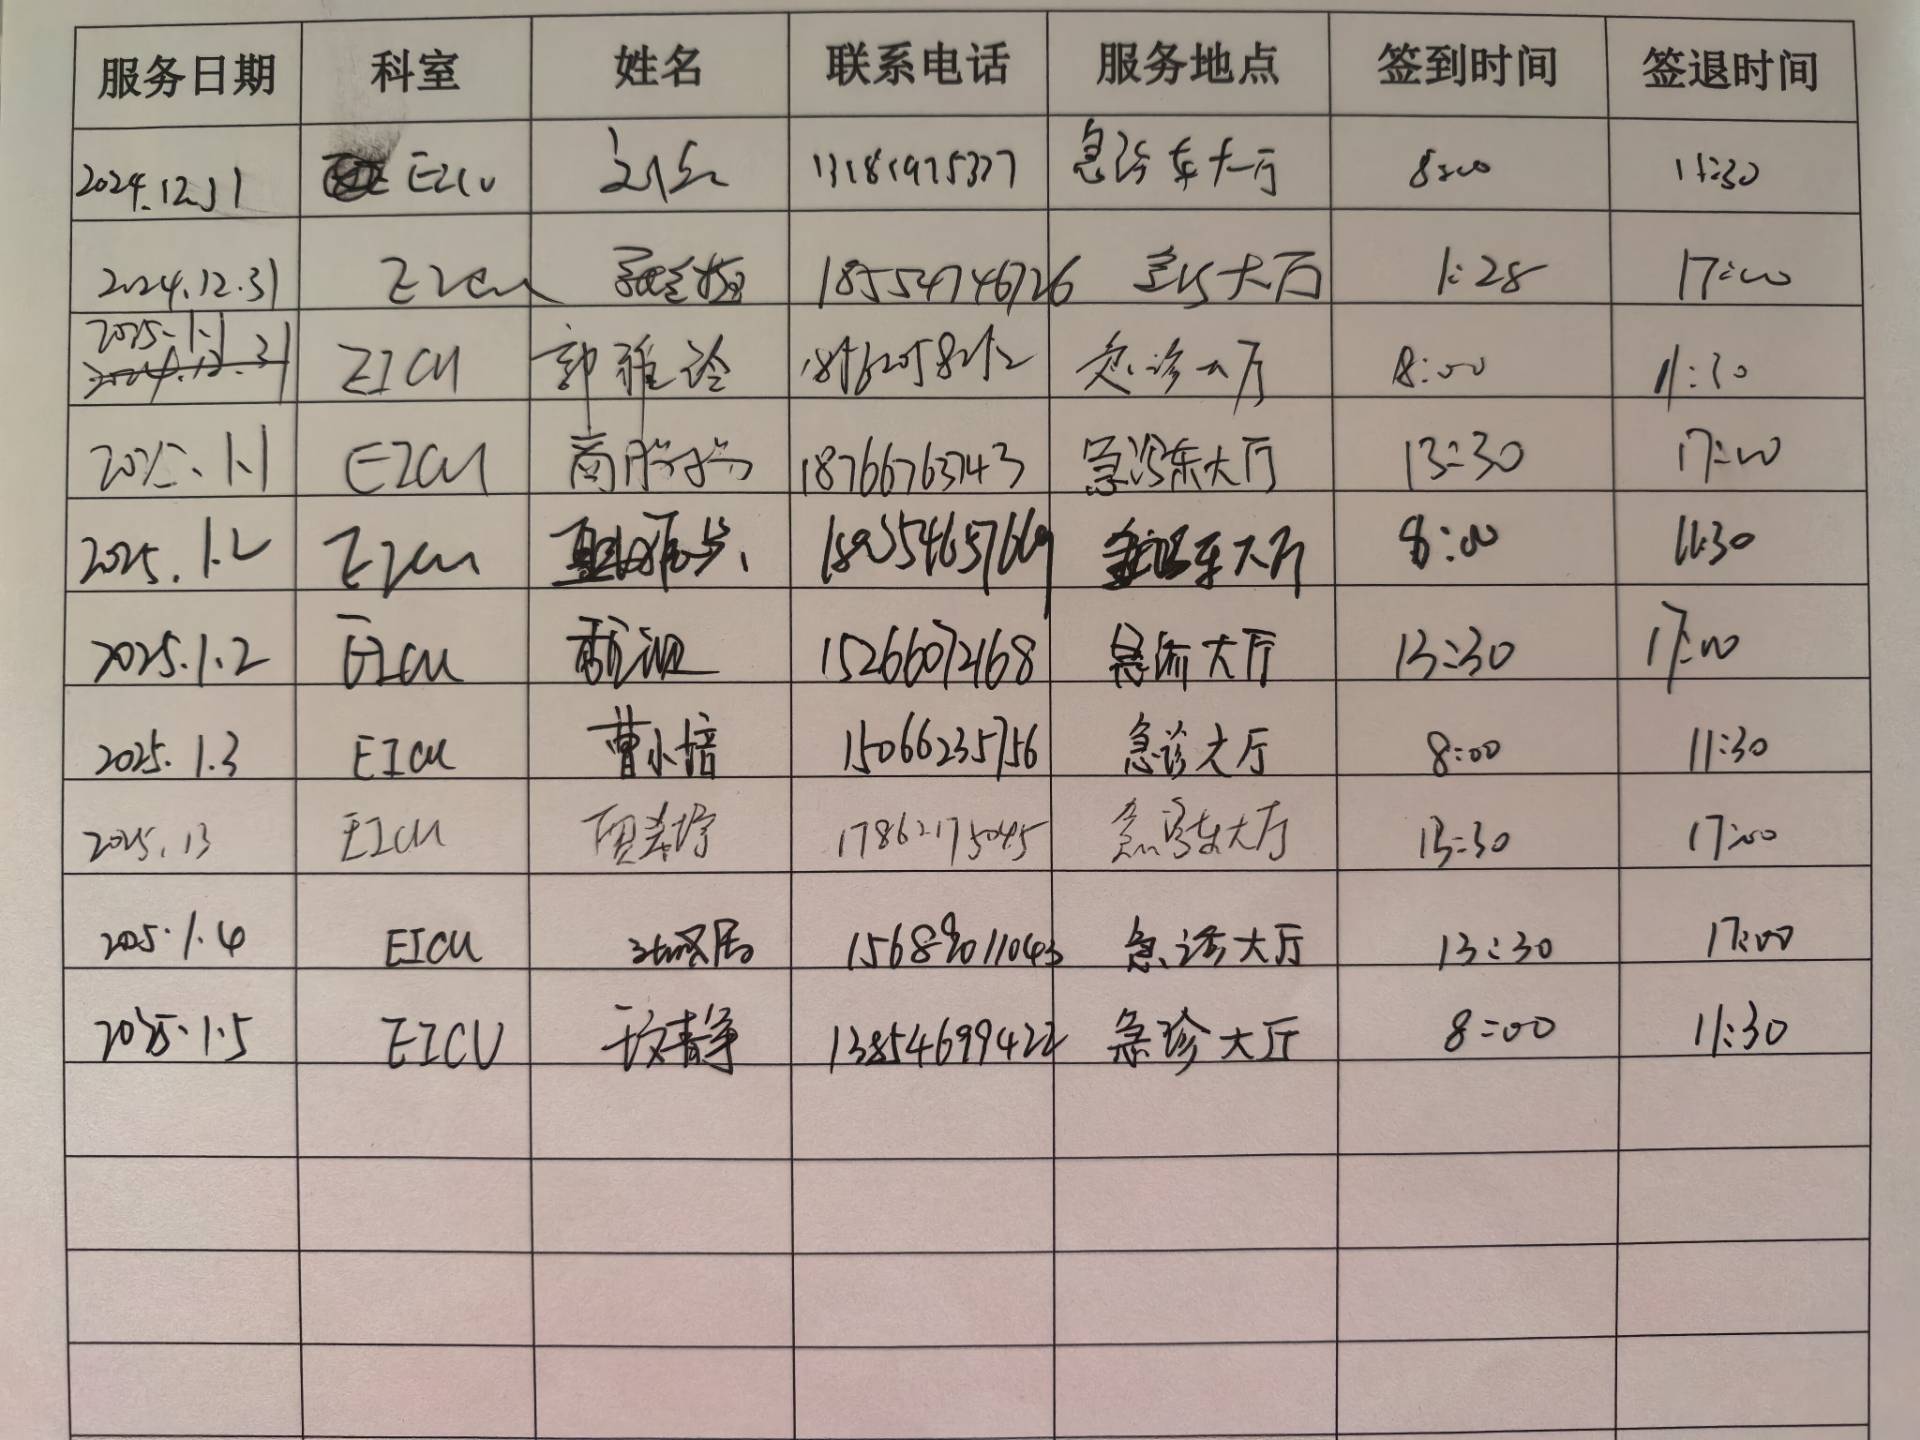 服务日期 科室 姓名 联系电话 服务地点 签到时间 签退时间
2024.12.31 EICU 13181975327 急诊东大厅 8:00 11:30
2024.12.31 EICU 18554746726 急诊大厅 1:28 17:00
2025.1.1 EICU 郭雅 急诊大厅 8:00 11:30
2024.12.31
2025.1.1 EICU 商 18766763743 急诊东大厅 13:30 17:00
2025.1.2 EICU 18954657669 急诊东大厅 8:00 11:30
2025.1.2 EICU 15266072168 急诊大厅 13:30 17:00
2025.1.3 EICU 曹小培 15066235756 急诊大厅 8:00 11:30
2025.13 EICU 17862175045 急诊东大厅 13:30 17:00
2025.1.4 EICU 15689011043 急诊大厅 13:30 17:00
2025.1.5 EICU 静 13854699422 急诊大厅 8:00 11:30